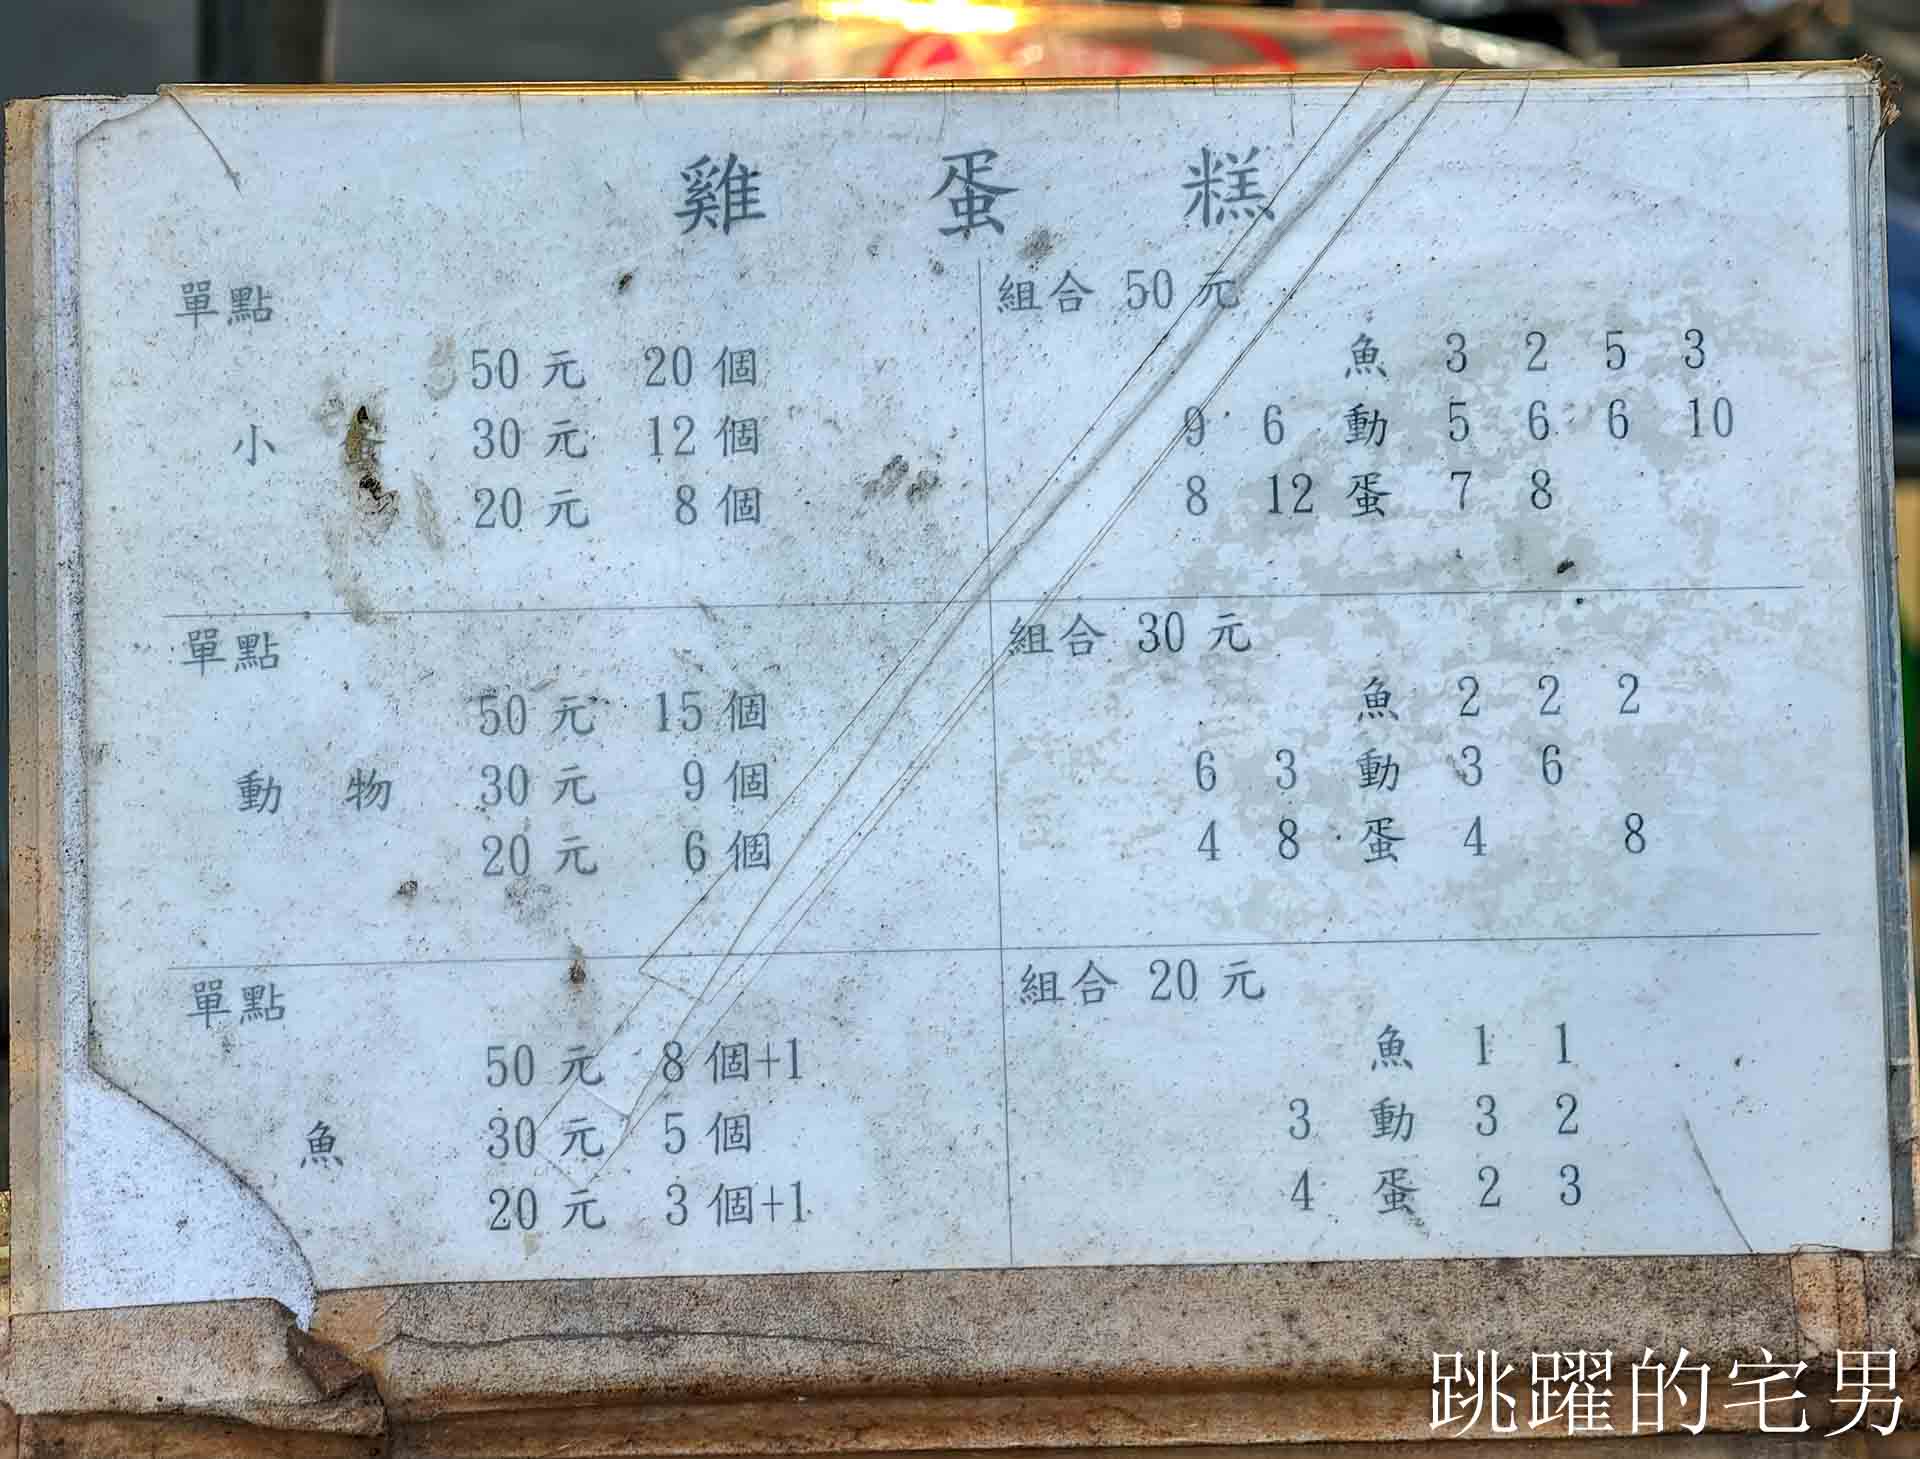 雞 蛋 糕
單點
50 元 20 個
小 30 元 12 個
20 元 8 個
組合 50 元
魚 3 2 5 3
9 6 動 5 6 6 10
8 12 蛋 7 8
單點
50 元 15 個
動 物 30 元 9 個
20 元 6 個
組合 30 元
魚 2 2 2
6 3 動 3 6
4 8 蛋 4 8
單點
50 元 8 個+1
魚 30 元 5 個
20 元 3 個+1
組合 20 元
魚 1 1
3 動 3 2
4 蛋 2 3
跳躍的宅男